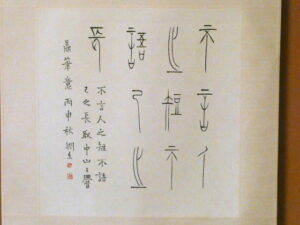 不言人
之短不
語己之
長
不言人之短不語
己之長取中山王譽
鼎筆意丙申秋